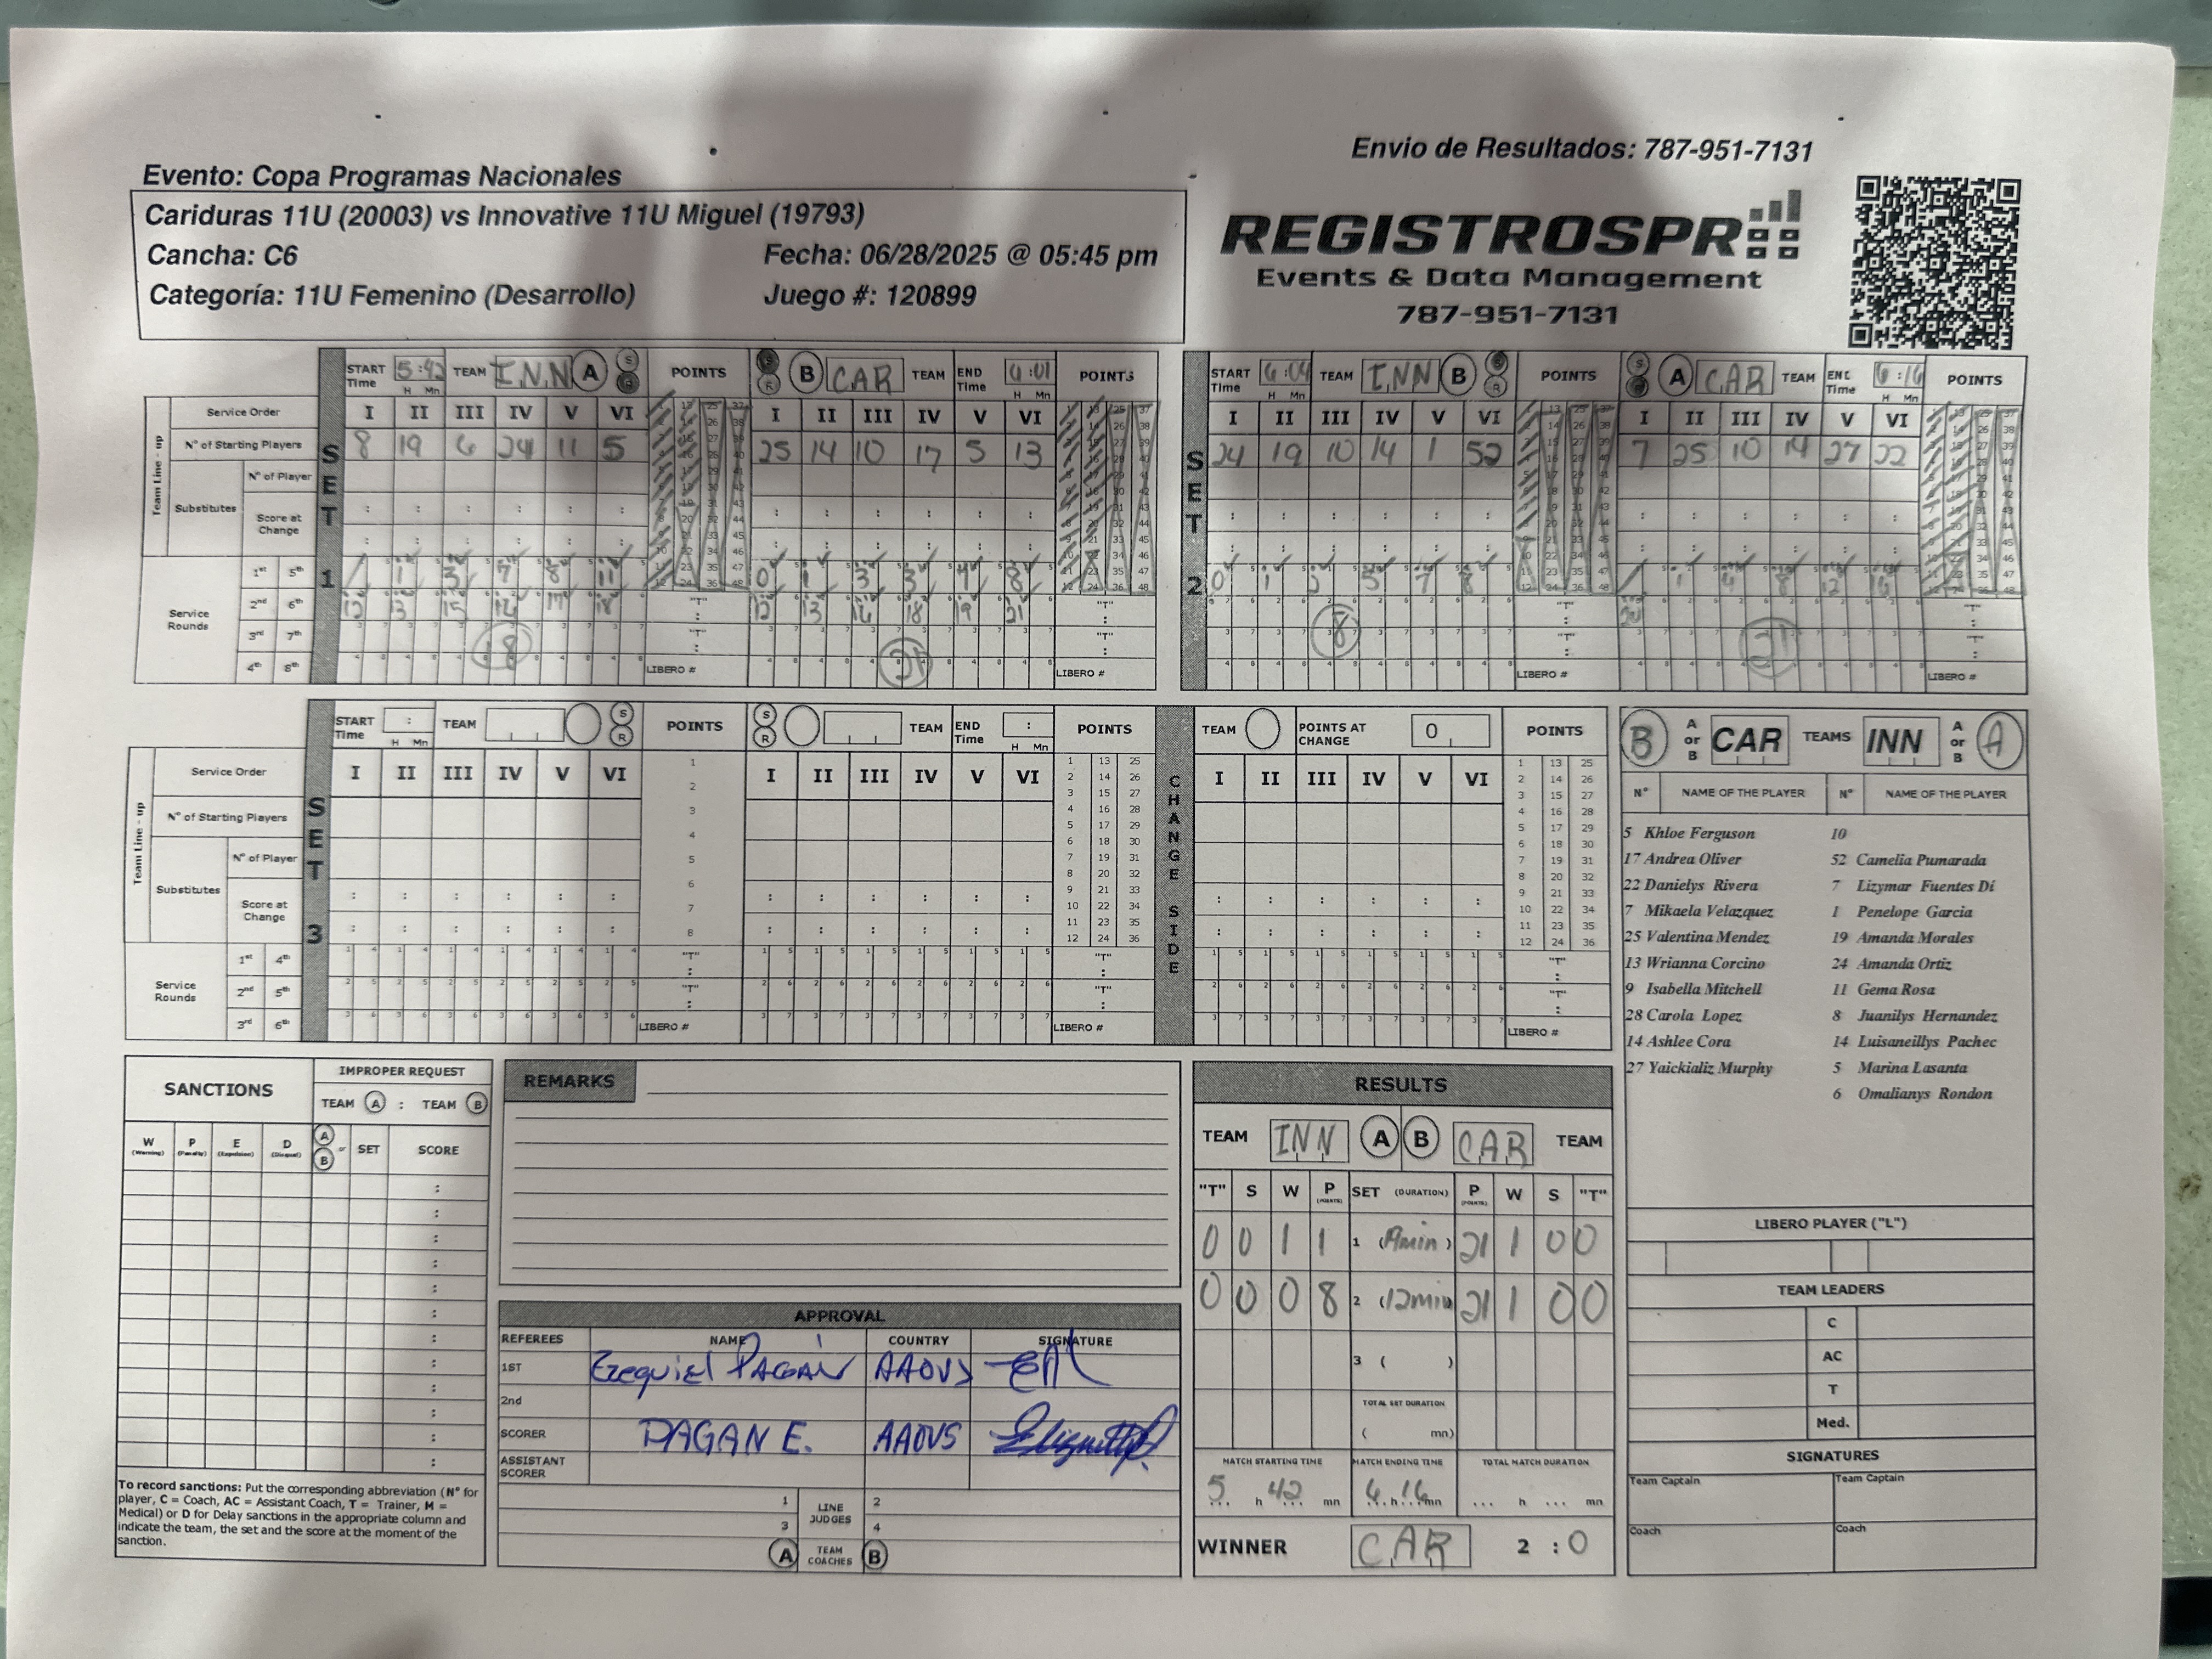 Envio de Resultados: 787-951-7131
Evento: Copa Programas Nacionales
Cariduras 11U (20003) vs Innovative 11U Miguel (19793)
Cancha: C6
Fecha: 06/28/2025 @ 05:45 pm
Categoría: 11U Femenino (Desarrollo)
Juego #: 120899
REGISTROSPR
Events & Data Management
787-951-7131
START Time 5:42 H Mn TEAM INN A S R POINTS S R B CAR TEAM END Time 6:01 H Mn POINTS
START Time 6:04 H Mn TEAM INN B S R POINTS S R A CAR TEAM END Time 6:16 H Mn POINTS
Team Line - up
Service Order I II III IV V VI I II III IV V VI I II III IV V VI I II III IV V VI
N° of Starting Players 8 19 6 24 11 5 25 14 10 17 5 13 24 19 10 14 1 52 7 25 10 14 27 22
SET 1
SET 2
Substitutes
N° of Player
Score at Change
Service Rounds
1st 5th 1 3 7 8 11 0 1 3 3 4 8 0 1 2 5 7 8 1 4 8 12
2nd 6th 12 13 15 17 18 12 13 14 18 19 21 "T"
3rd 7th 18 21 8 21 "T"
4th 8th LIBERO # LIBERO # LIBERO # LIBERO #
START Time : H Mn TEAM S R POINTS S R TEAM END Time : H Mn POINTS
TEAM POINTS AT CHANGE 0 POINTS
Team Line - up
Service Order I II III IV V VI I II III IV V VI I II III IV V VI
N° of Starting Players
SET 3
CHANGE SIDE
Substitutes
N° of Player
Score at Change
Service Rounds
1st 4th "T"
2nd 5th "T"
3rd 6th LIBERO # LIBERO # LIBERO #
B A or B CAR TEAMS INN A or B A
N° NAME OF THE PLAYER N° NAME OF THE PLAYER
5 Khloe Ferguson 10
17 Andrea Oliver 52 Camelia Pumarada
22 Danielys Rivera 7 Lizymar Fuentes Di
7 Mikaela Velazquez 1 Penelope Garcia
25 Valentina Mendez 19 Amanda Morales
13 Wrianna Corcino 24 Amanda Ortiz
9 Isabella Mitchell 11 Gema Rosa
28 Carola Lopez 8 Juanilys Hernandez
14 Ashlee Cora 14 Luisaneillys Pachec
27 Yaickializ Murphy 5 Marina Lasanta
6 Omalianys Rondon
LIBERO PLAYER ("L")
TEAM LEADERS
C
AC
T
Med.
SIGNATURES
Team Captain Team Captain
Coach Coach
SANCTIONS
IMPROPER REQUEST
TEAM A : TEAM B
W (Warning) P (Penalty) E (Expulsion) D (Disqual) A B SET SCORE
To record sanctions: Put the corresponding abbreviation (N° for
player, C = Coach, AC = Assistant Coach, T = Trainer, M =
Medical) or D for Delay sanctions in the appropriate column and
indicate the team, the set and the score at the moment of the
sanction.
REMARKS
APPROVAL
REFEREES NAME COUNTRY SIGNATURE
1ST Ezequiel PAGAN AAOVS
2nd
SCORER PAGAN E. AAOVS
ASSISTANT SCORER
1 LINE JUDGES 2
3 4
A TEAM COACHES B
RESULTS
TEAM INN A B CAR TEAM
"T" S W P (POINTS) SET (DURATION) P (POINTS) W S "T"
0 0 1 1 1 (19min) 21 1 0 0
0 0 0 8 2 (12min) 21 1 0 0
3 ( )
TOTAL SET DURATION
( mn)
MATCH STARTING TIME MATCH ENDING TIME TOTAL MATCH DURATION
5 h 42 mn 6 h 16 mn ... h ... mn
WINNER CAR 2 : 0